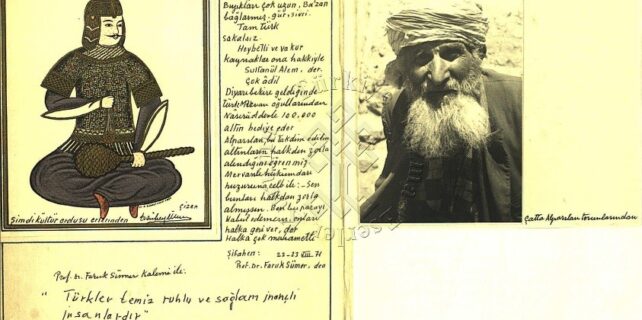 Bıyıkları çok uzun. Ba'zan
bağlarmış - gür, sivri.
Tam Türk
Sakalsız
Heybetli ve vakur
Kaynaklar ona hakkiyle
Sultanül Âlem, der.
Çok âdil
Diyarıbekire geldiğinde
Türk Mervan oğullarından
Nasrüddevle 100.000
altın hediye eder
Alparslan, bu takdim edilen
altınların halkdan zorla
alındığını öğrenmiş
Mervanlı hükümdarı
huzuruna celb ile: - Sen
bunları halkdan zorla
almışsın. Ben bu parayı
kabul edemem, onları
halka geri ver, der
Halka çok merhametli
Şifahen: 23-25 VIII. 71
Prof. Dr. Faruk Sümer, den
Çizen
Şimdi kültür ordusu erlerinden
Çatta Alparslan torunlarından
Prof. Dr. Faruk Sümer Kalemi ile:
" Türkler temiz ruhlu ve sağlam inançlı
insanlardır "